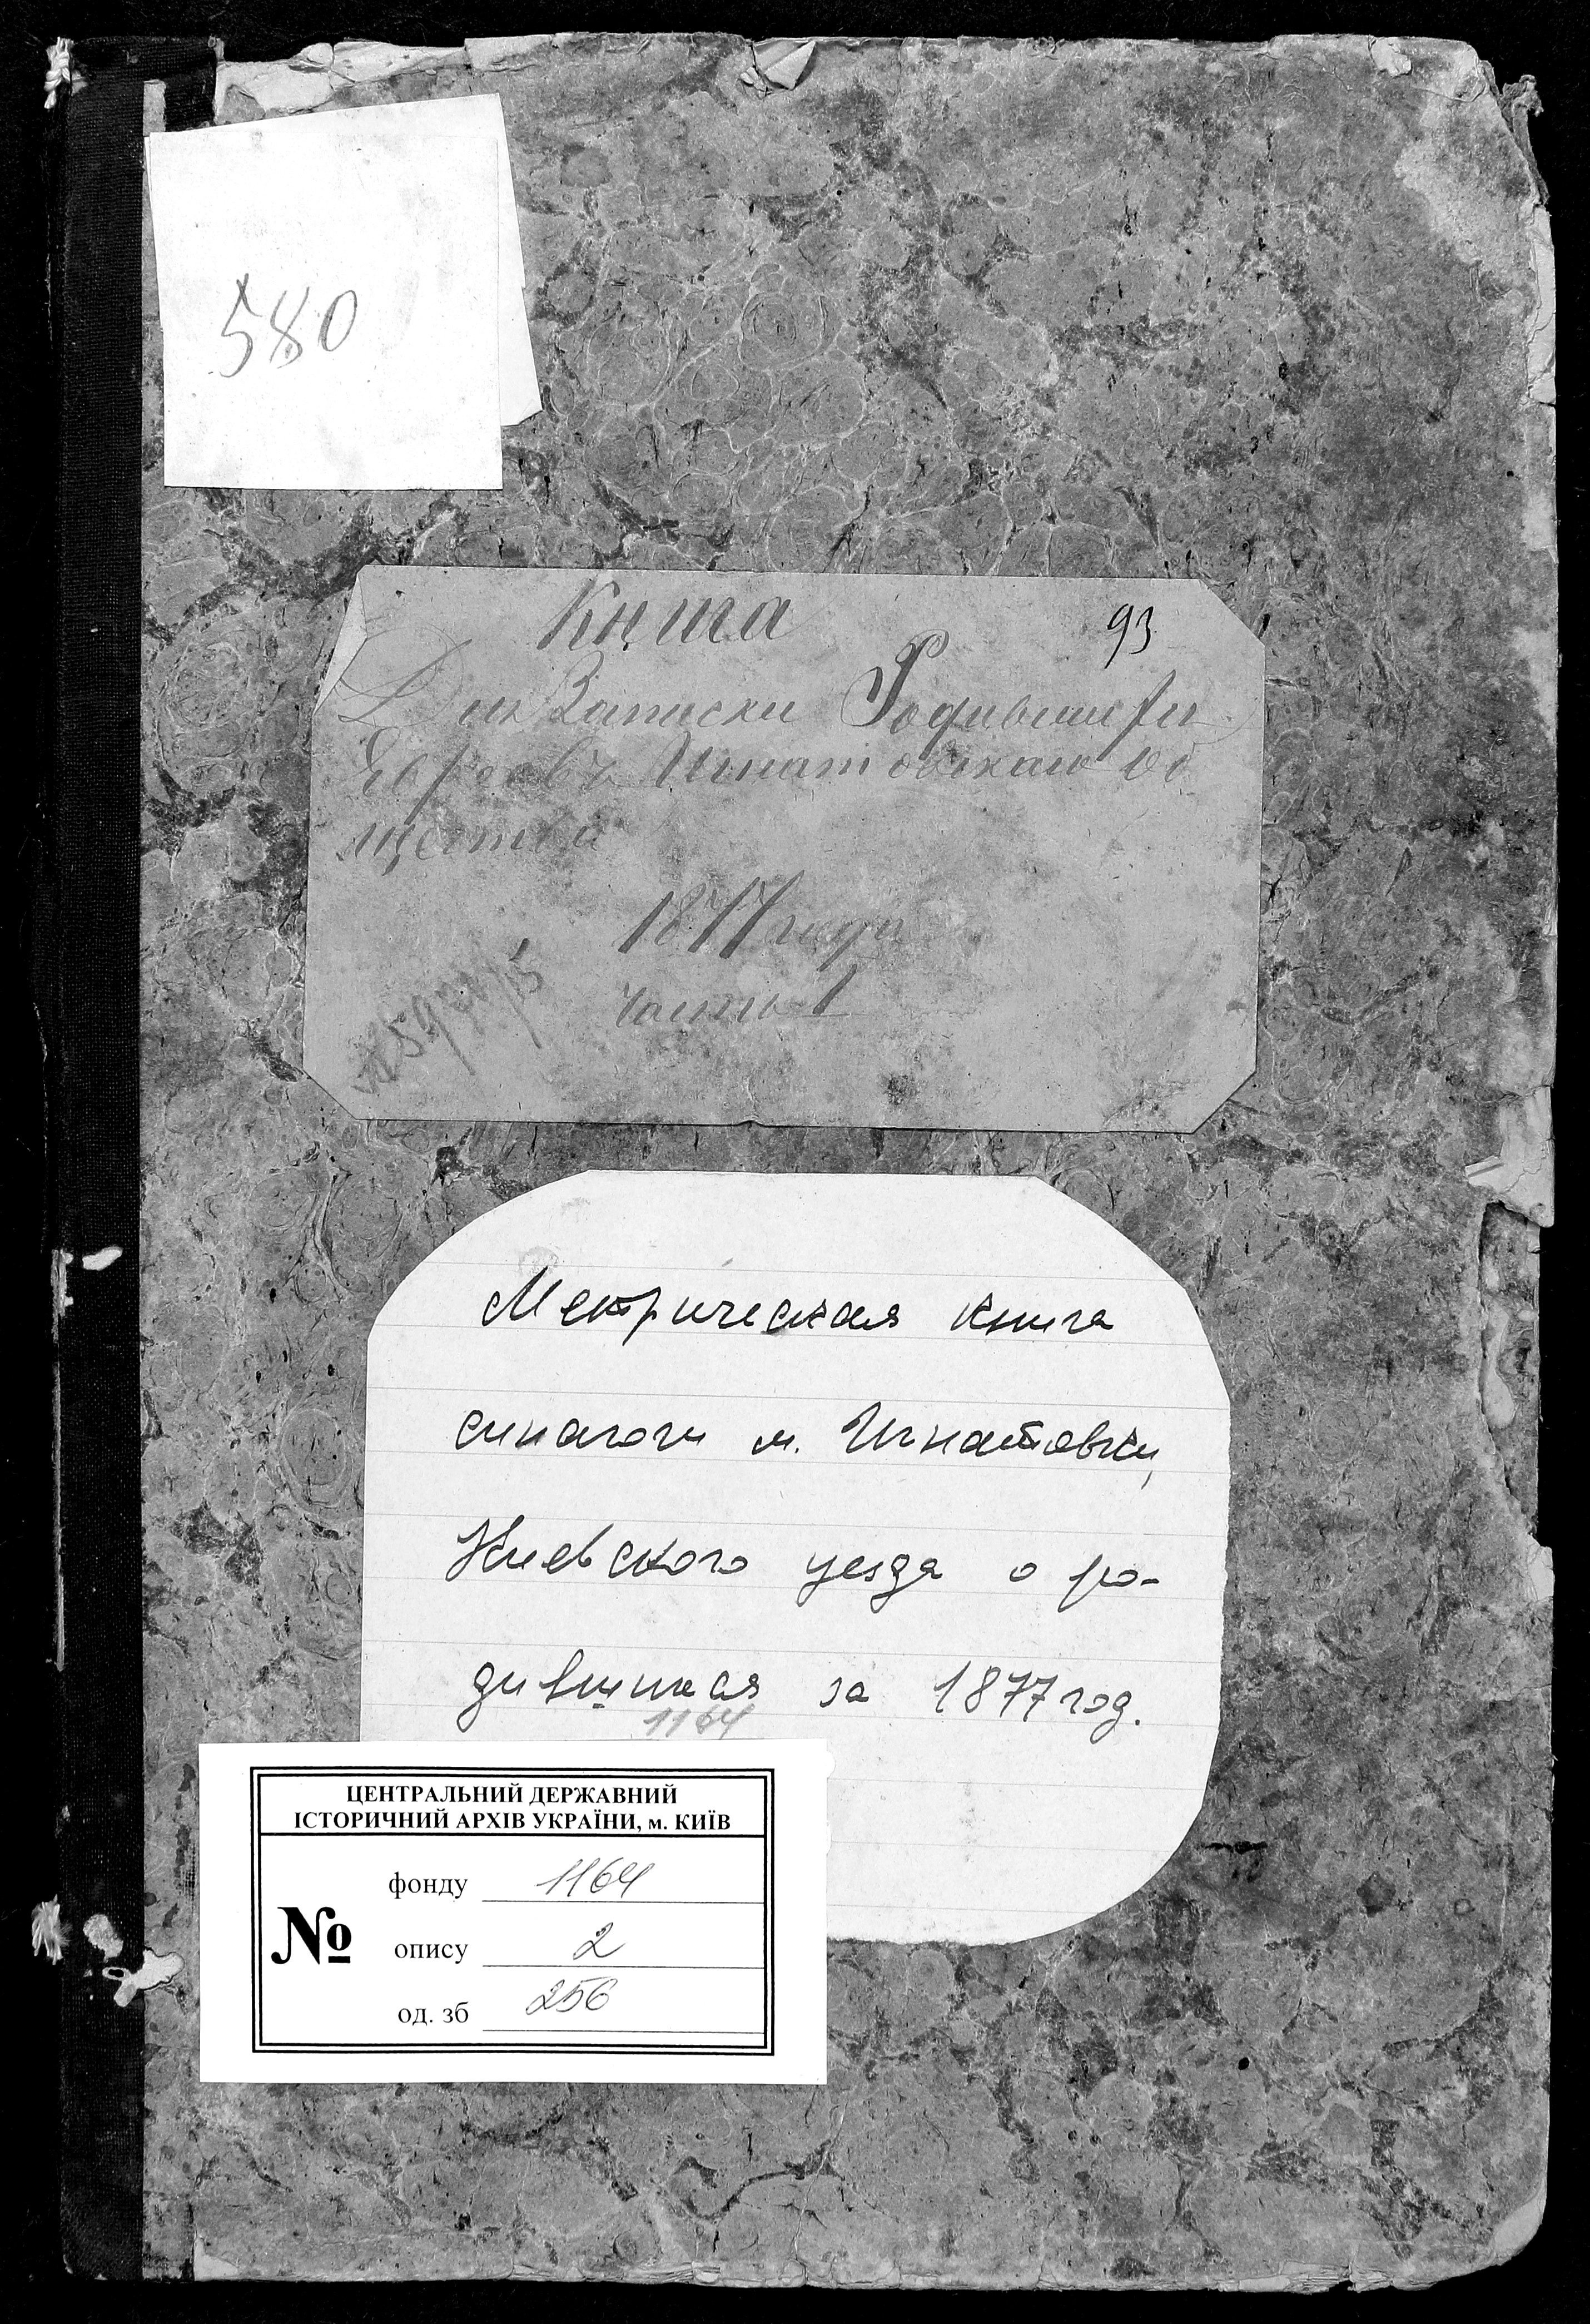 580
Книга
93
Для Записки Родившихся
Евреевъ Игнатовскаго Об
щества
1877 года
часть 1
Метрическая книга
синагоги м. Игнатовки,
Киевского уезда о ро-
дившихся за 1877 год.
1164
ЦЕНТРАЛЬНИЙ ДЕРЖАВНИЙ
ІСТОРИЧНИЙ АРХІВ УКРАЇНИ, м. КИЇВ
фонду 1164
№ опису 2
од. зб 256